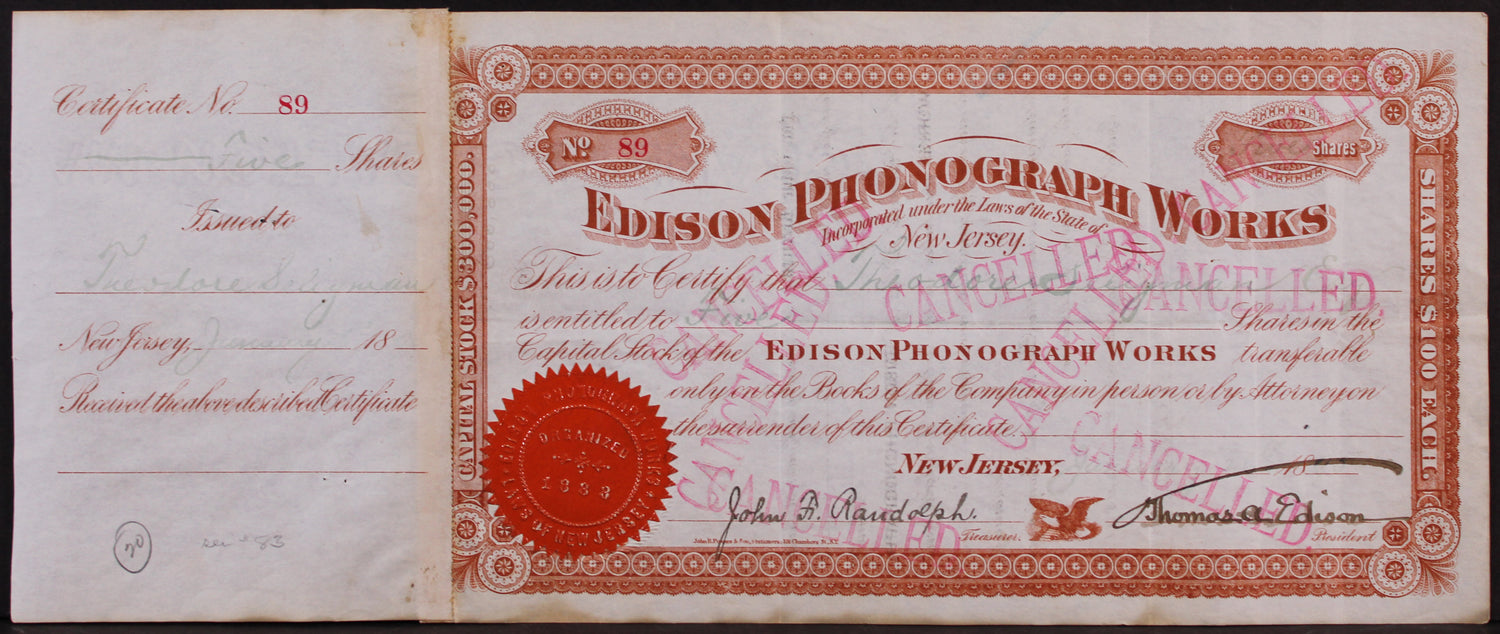 Certificate No. 89
Five Shares
Issued to
Theodore Seligman
New Jersey, January 18
Received the above described Certificate
20
CAPITAL STOCK $300,000.
No 89
Shares
EDISON PHONOGRAPH WORKS
Incorporated under the Laws of the State of
New Jersey.
This is to Certify that Theodore Seligman
is entitled to Five Shares in the
Capital Stock of the EDISON PHONOGRAPH WORKS transferable
only on the Books of the Company in person or by Attorney on
the surrender of this Certificate.
NEW JERSEY, 18
John F. Randolph. Treasurer.
Thomas A Edison President
SHARES $100 EACH.
ORGANIZED
1888
NEW JERSEY
CANCELLED
CANCELLED
CANCELLED
CANCELLED
CANCELLED
CANCELLED
CANCELLED
CANCELLED
CANCELLED